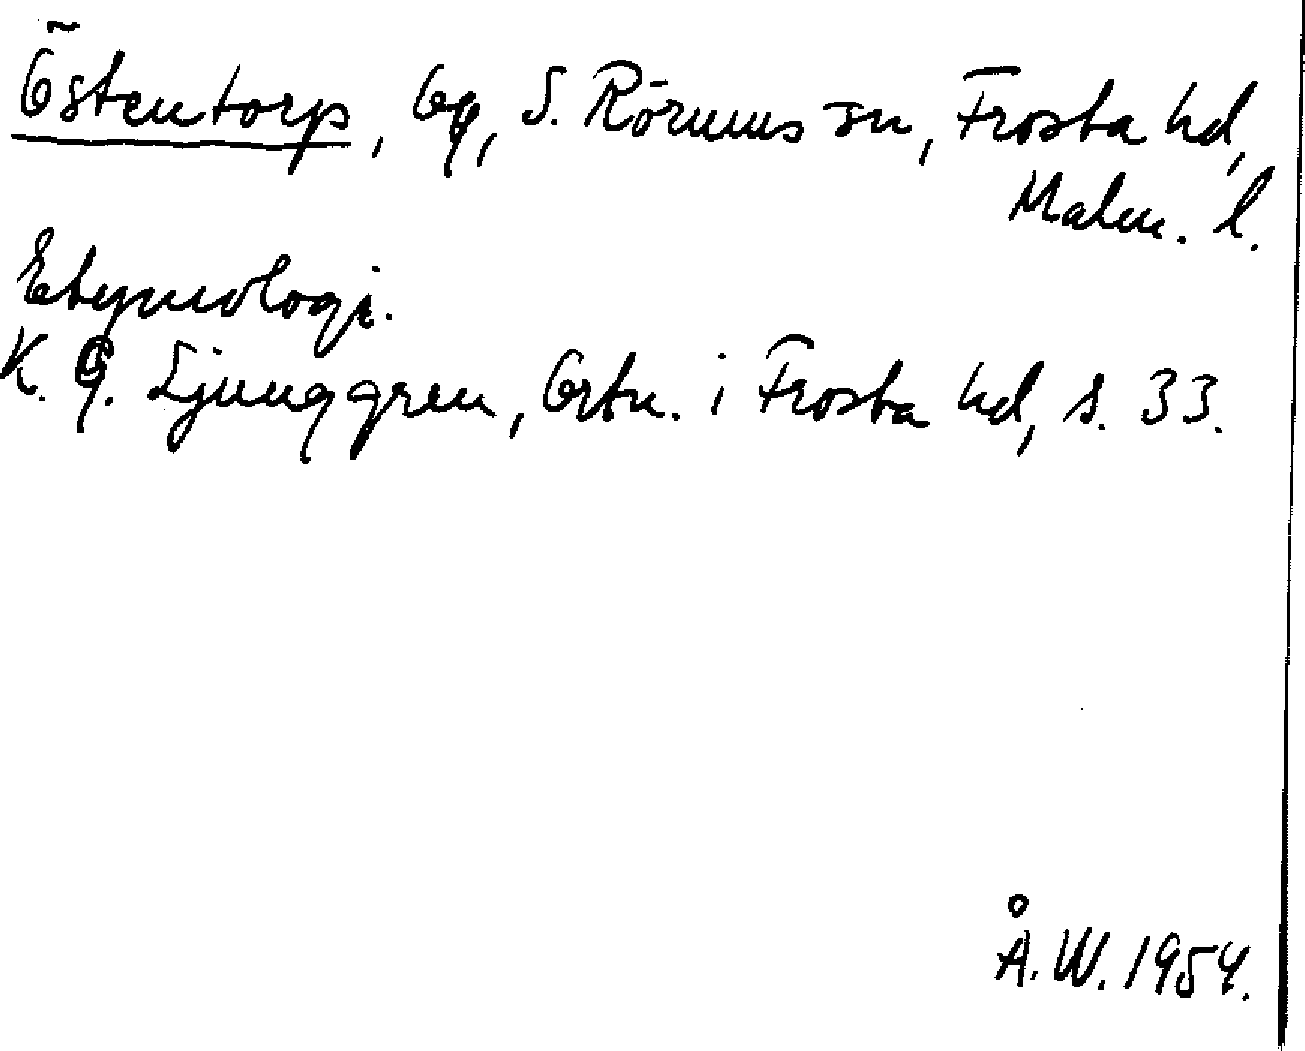 Östentorp, by, S. Rörums sn, Frosta hd,
Malm. l.
Etymologi.
K. G. Ljunggren, Ortn. i Frosta hd, s. 33.
Å. W. 1954.